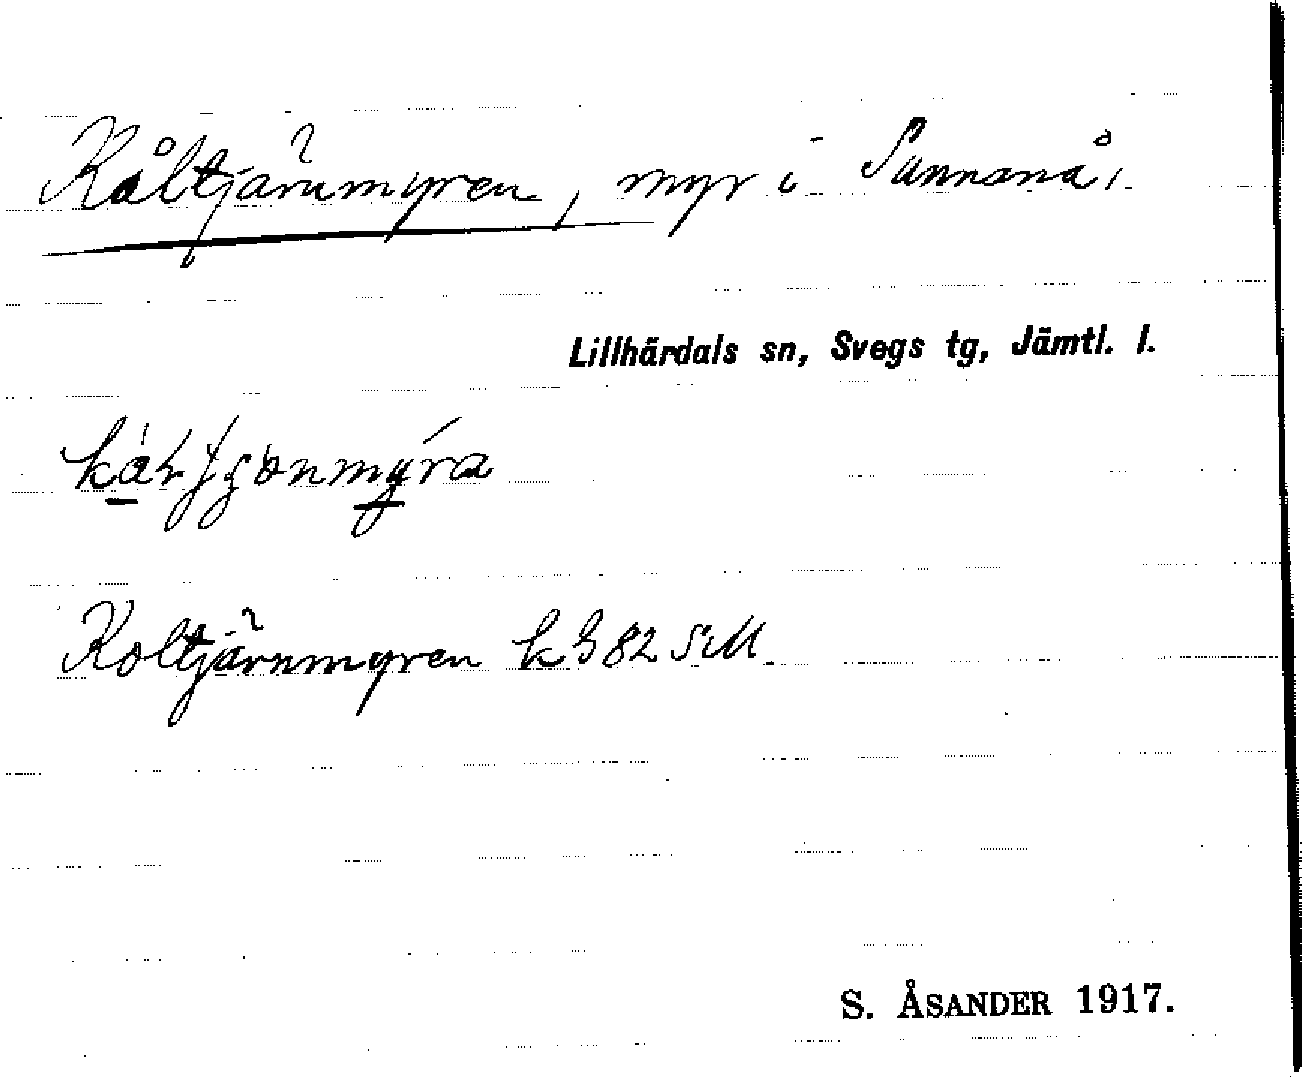 Kåltjärnmyren, myr i Sunnanå,
Lillhärdals sn, Svegs tg, Jämtl. l.
Koltjärnmyren k 382 SM
S. ÅSANDER 1917.